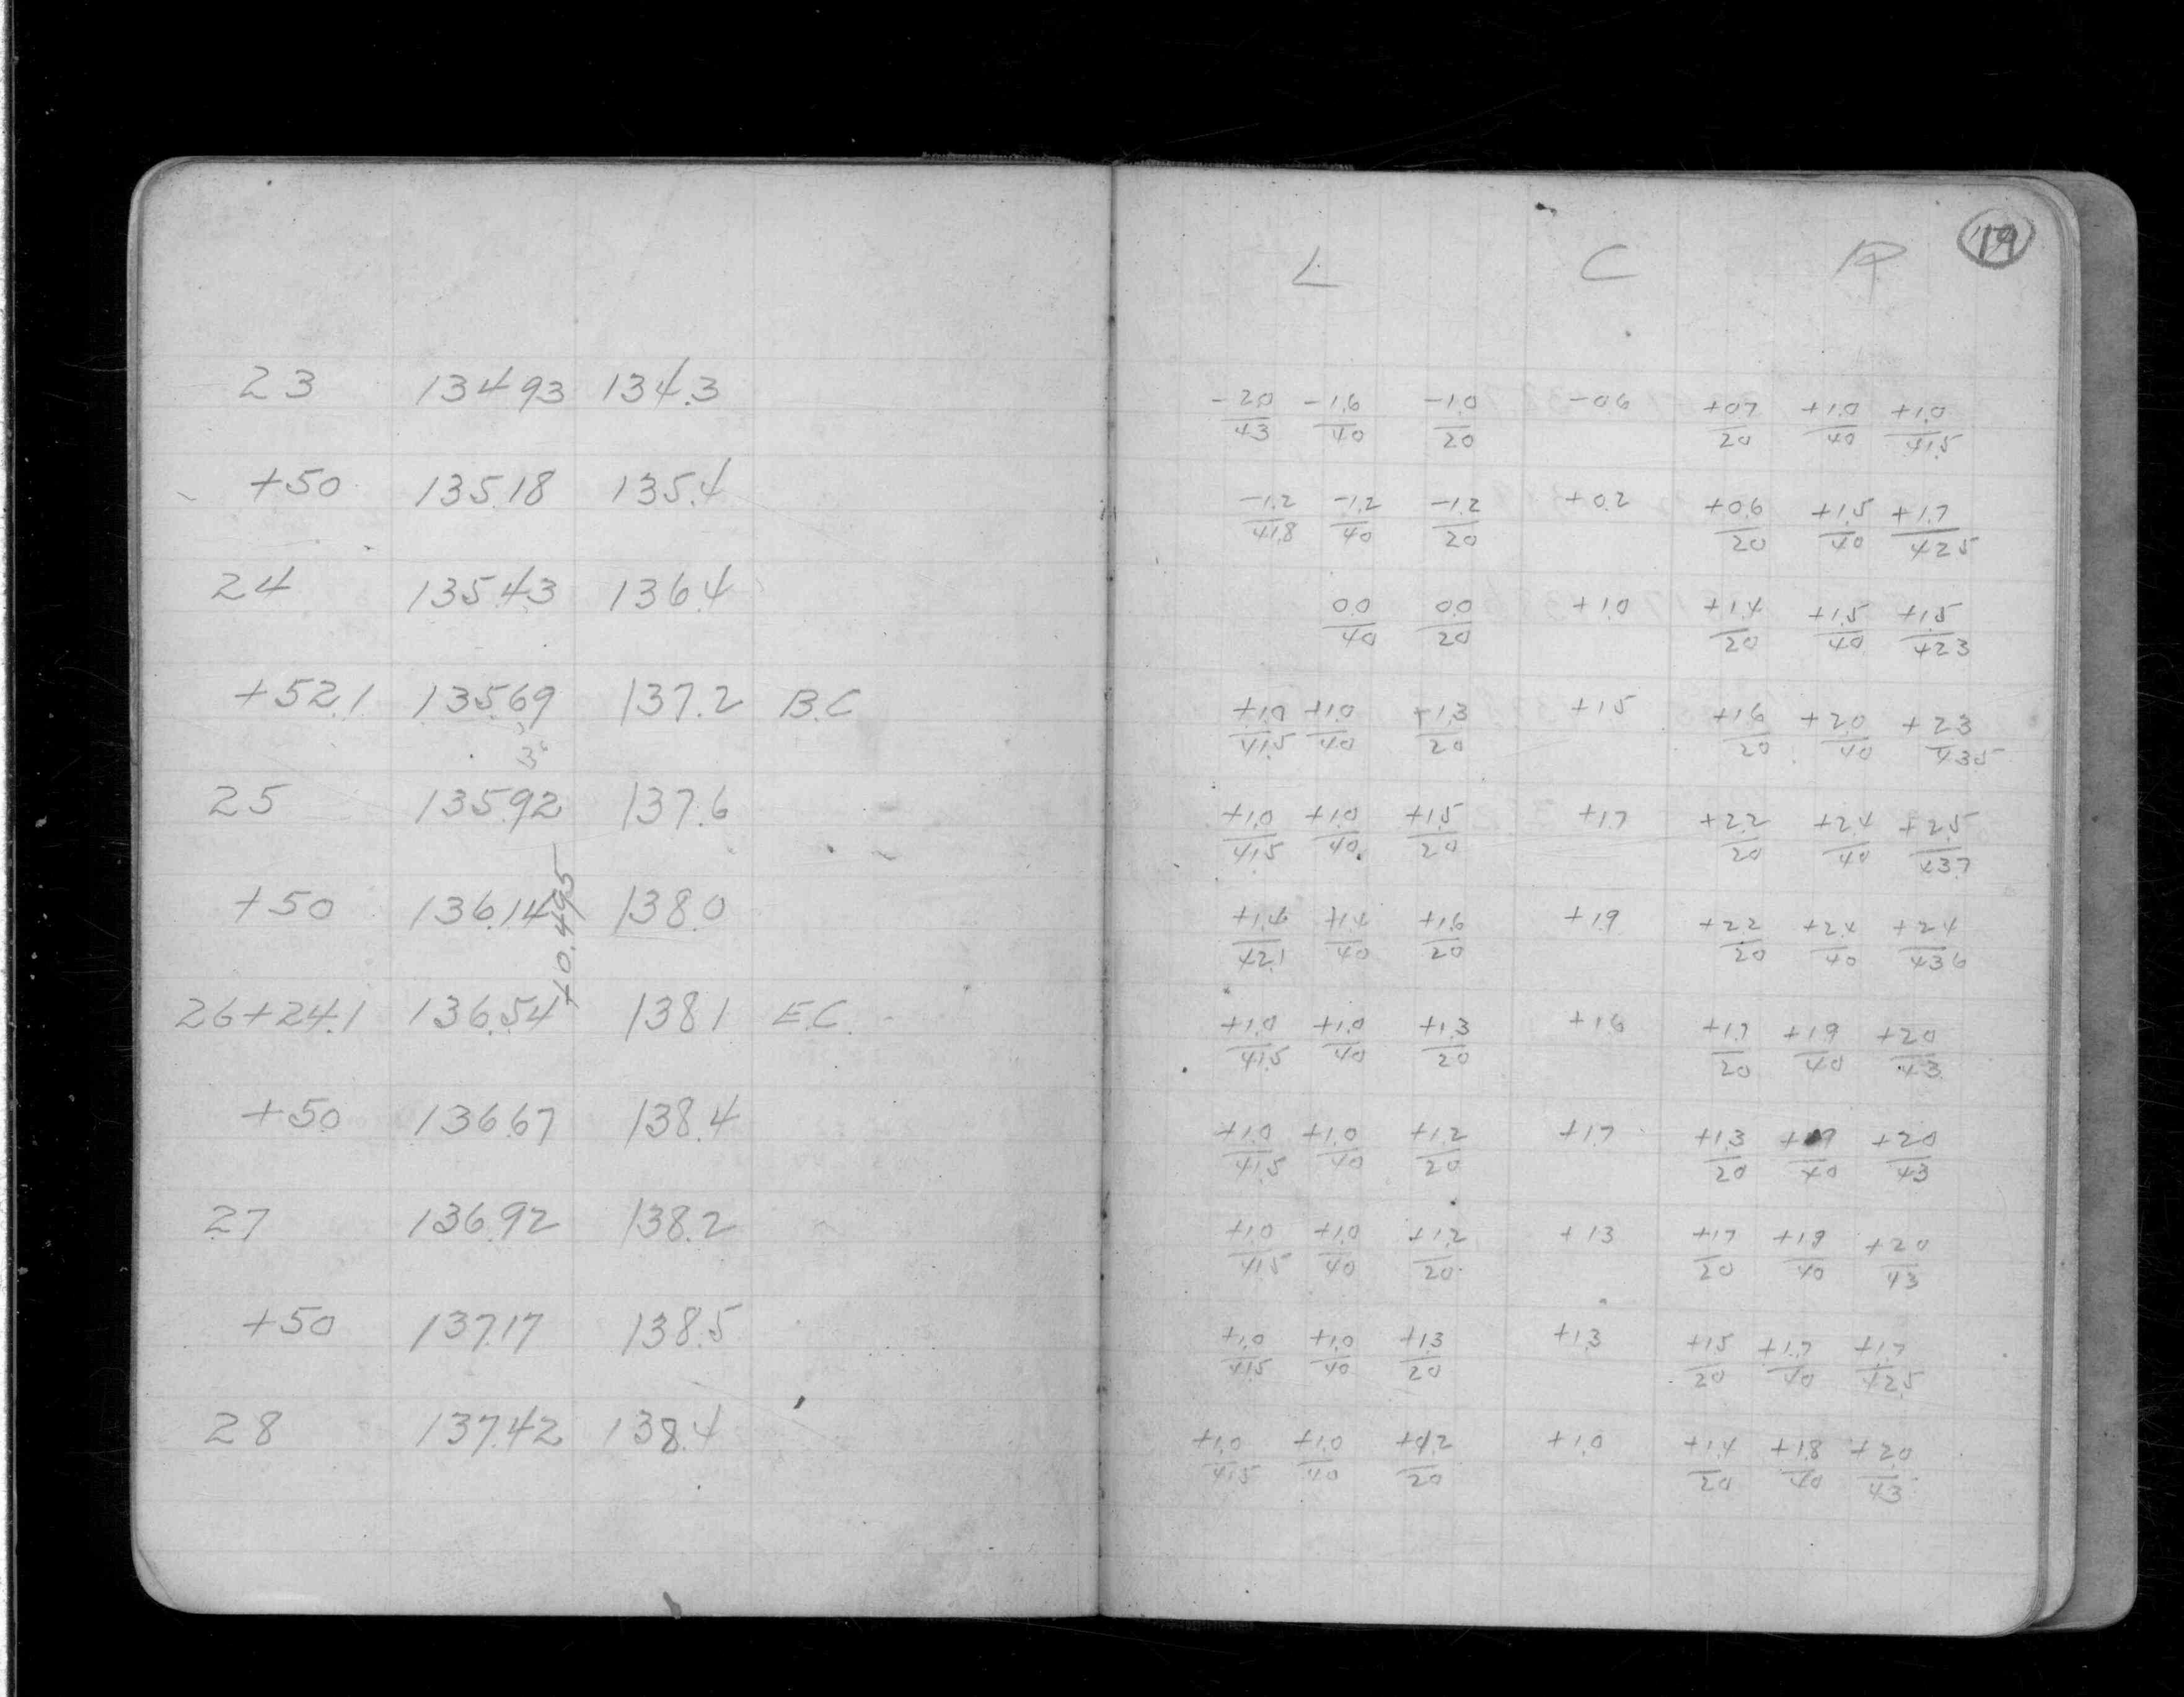 19
L C R
23 134.93 134.3
-2.0/43 -1.6/40 -1.0/20 -0.6 +0.7/20 +1.0/40 +1.0/41.5
+50 135.18 135.4
-1.2/41.8 -1.2/40 -1.2/20 +0.2 +0.6/20 +1.5/40 +1.7/42.5
24 135.43 136.4
0.0/40 0.0/20 +1.0 +1.4/20 +1.5/40 +1.5/42.3
+52.1 135.69 137.2 B.C
+1.0/41.5 +1.0/40 +1.3/20 +1.5 +1.6/20 +2.0/40 +2.3/43.5
25 135.92 137.6
+1.0/41.5 +1.0/40 +1.5/20 +1.7 +2.2/20 +2.4/40 +2.5/43.7
+50 136.14 138.0
+0.495
+1.4/42.1 +1.4/40 +1.6/20 +1.9 +2.2/20 +2.4/40 +2.4/43.6
26+24.1 136.54 138.1 E.C.
+1.0/41.5 +1.0/40 +1.3/20 +1.6 +1.7/20 +1.9/40 +2.0/43
+50 136.67 138.4
+1.0/41.5 +1.0/40 +1.2/20 +1.7 +1.3/20 +1.9/40 +2.0/43
27 136.92 138.2
+1.0/41.5 +1.0/40 +1.2/20 +1.3 +1.7/20 +1.9/40 +2.0/43
+50 137.17 138.5
+1.0/41.5 +1.0/40 +1.3/20 +1.3 +1.5/20 +1.7/40 +1.7/42.5
28 137.42 138.4
+1.0/41.5 +1.0/40 +1.2/20 +1.0 +1.4/20 +1.8/40 +2.0/43